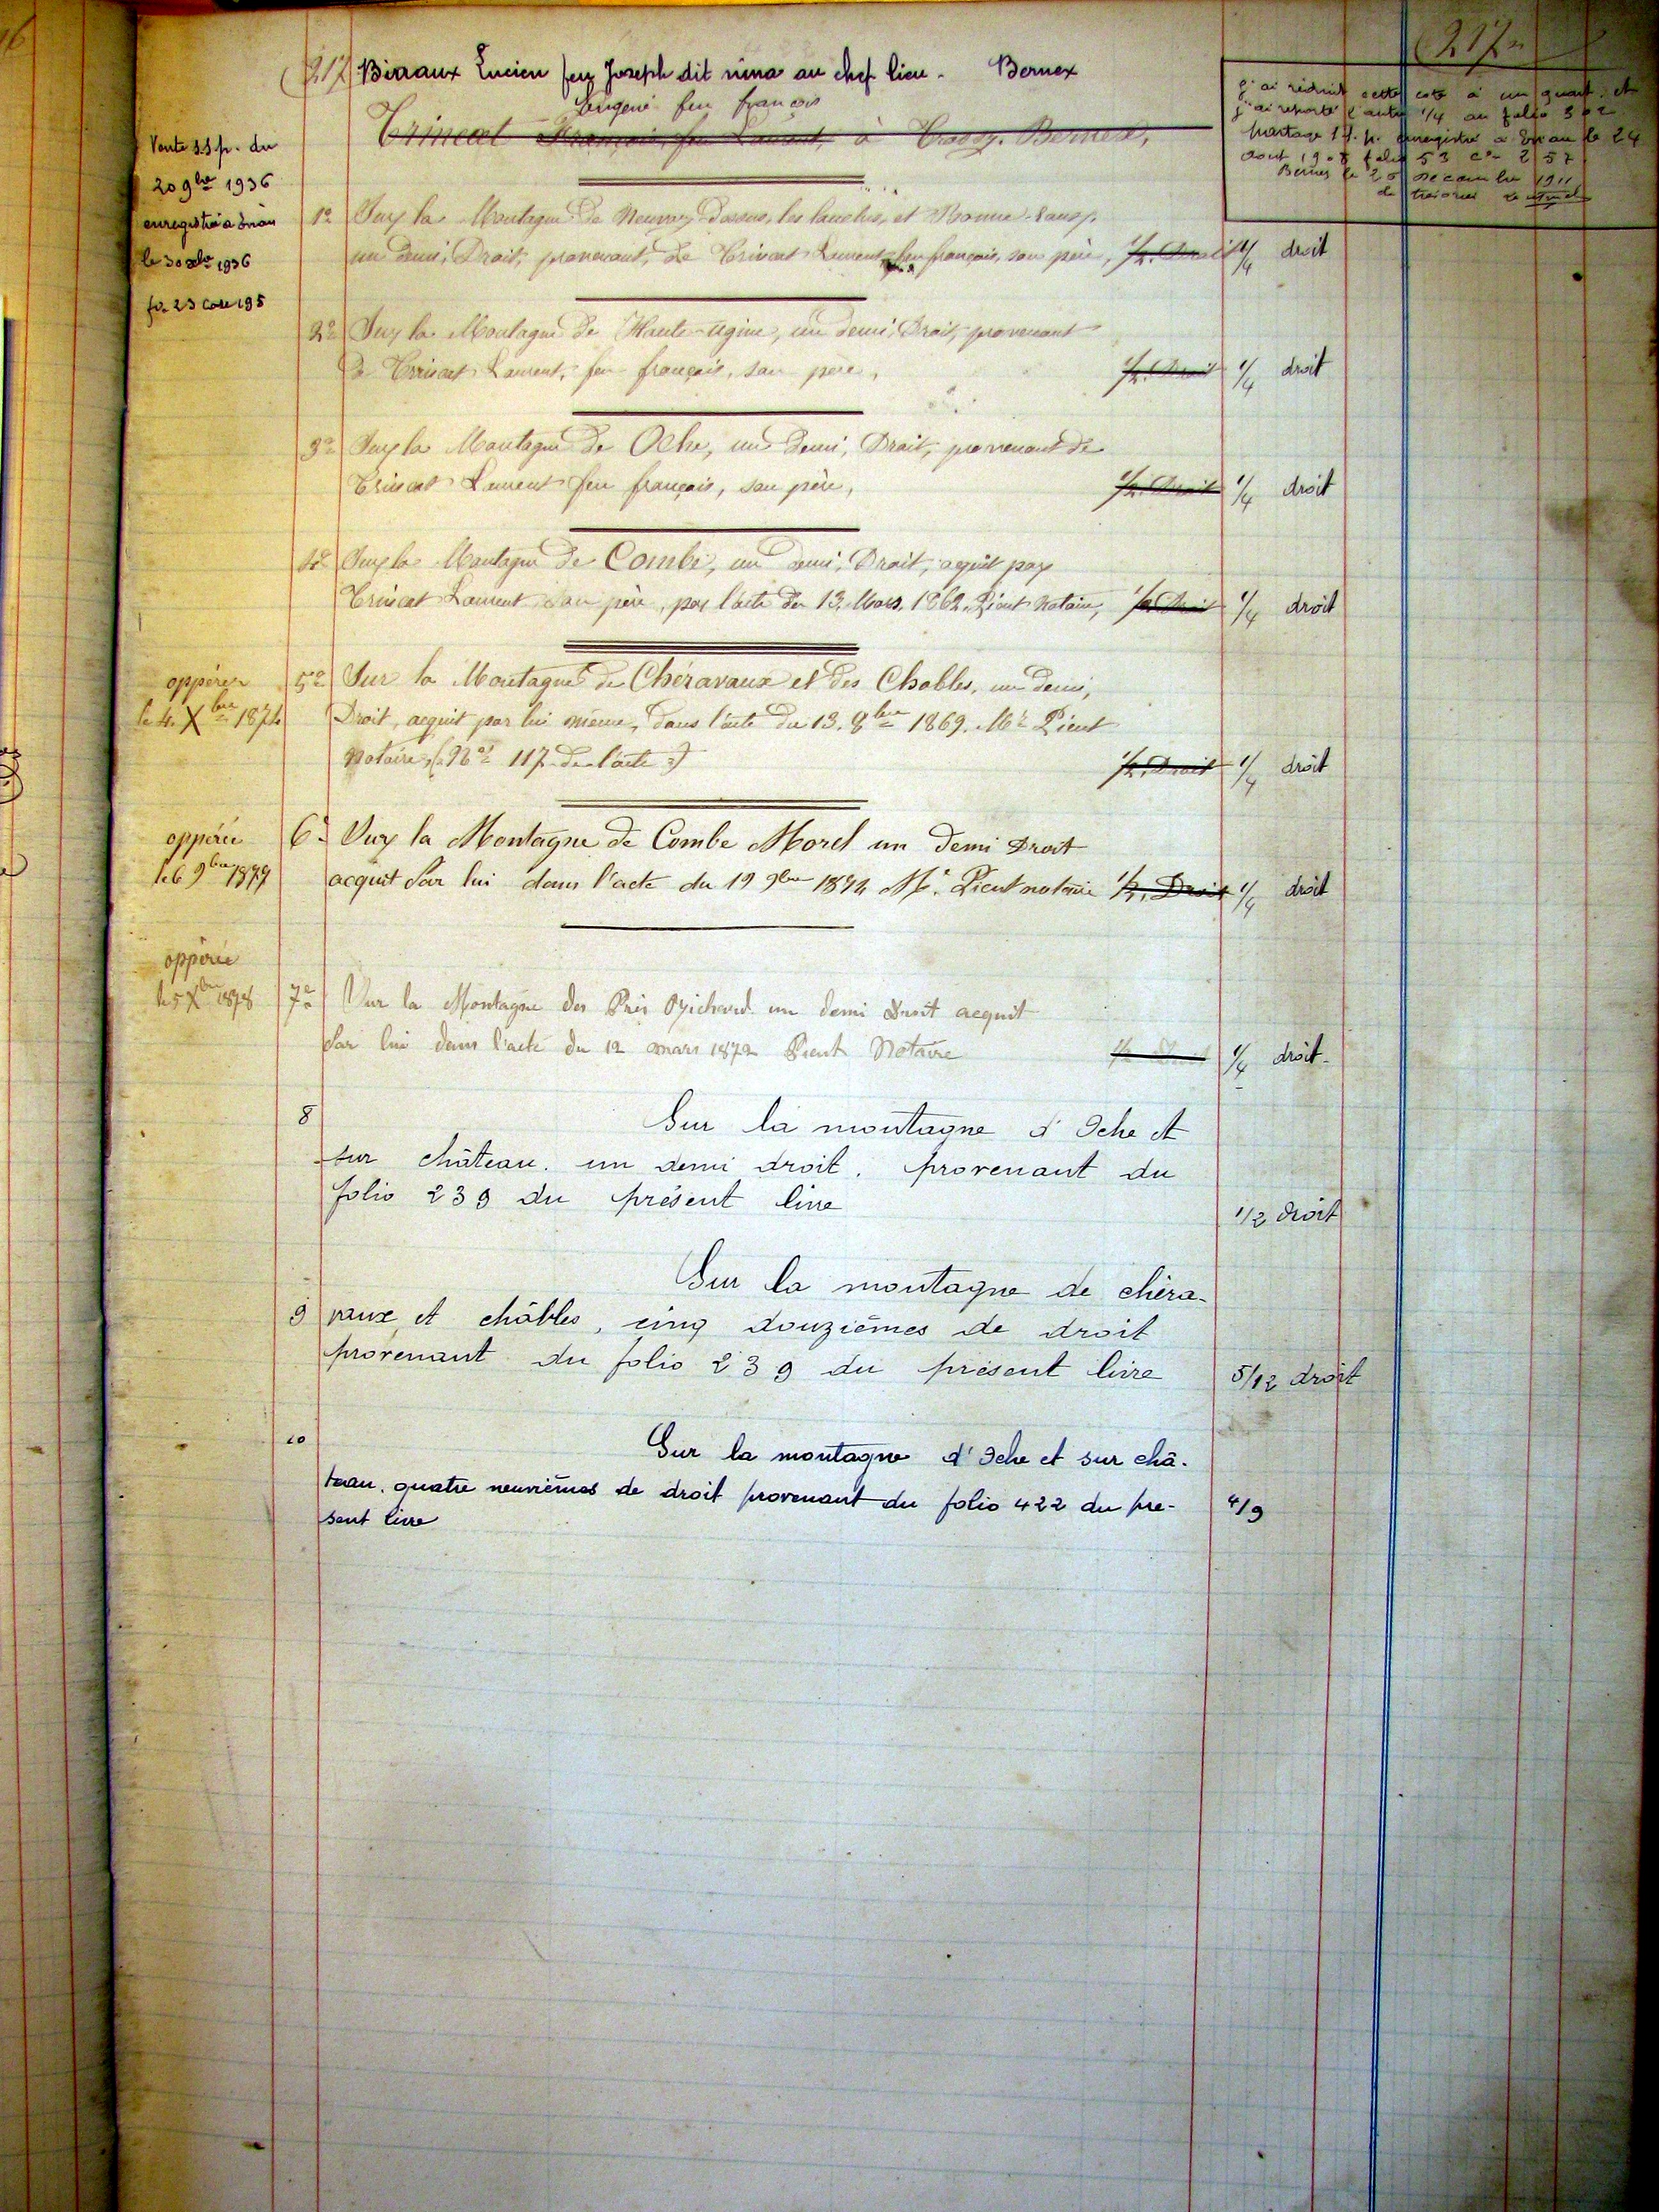 217
217 Birraux Lucien feu Joseph dit nina au chef lieu - Bernex
Eugène feu françois
Trincat François feu Laurent, à Trossy. Bernex,
j'ai réduit cette cote à un quart et
j'ai reporté l'autre 1/4 au folio 302
partage s.s.p. enregistré à Evian le 24
aout 1908 folio 53 ce 257
Bernex le 20 décembre 1911
Vente s.s.p. du
20 9bre 1936
enregistrée à Evian
le 30 xbre 1936
fo 23 case 195
1º Sur la Montagne de Neuvaz Dessus, les lanches, et Bonne-
un demi, Droit, provenant, de Trincat Laurent, feu françois, son père, 1/2. Droit 1/4 droit
2º Sur la Montagne de Haute-Ugine, un demi, Droit, provenant
de Trincat Laurent, feu françois, son père, 1/2. Droit 1/4 droit
3º Sur la Montagne de Oche, un demi, Droit, provenant de
Trincat Laurent feu françois, son père, 1/2. Droit 1/4 droit
4º Sur la Montagne de Combe, un demi, Droit, aquit par
Trincat Laurent son père, par l'acte du 13. Mars. 1862. Pient Notaire, 1/2 Droit 1/4 droit
oppérée
le 4. Xbre 1874
5º Sur la Montagne de Chéravaux et des Chables, un demi,
Droit, acquit par lui même, dans l'acte du 13. 8bre 1869. Me Pient
Notaire, (Nº 117 de l'acte) 1/2. Droit 1/4 droit
oppérée
le 6 9bre 1879
6º Sur la Montagne de Combe Morel un demi Droit
acquit Par lui dans l'acte du 19 9bre 1874 Me. Pient notaire 1/2. Droit 1/4 droit
oppérée
le 5 Xbre 1878
7º Sur la Montagne des Prés Richard un demi Droit acquit
Par lui dans l'acte du 12 mars 1872 Pient Notaire 1/2 Droit 1/4 droit-
8 Sur la montagne d'Oche et
sur château. un demi droit. provenant du
folio 239 du présent livre 1/2 droit
Sur la montagne de chéra-
9 vaux et châbles, cinq douzièmes de droit
provenant du folio 239 du présent livre 5/12 droit
10 Sur la montagne d'Oche et sur châ-
teau. quatre neuvièmes de droit provenant du folio 422 du pre- 4/9
sent livre